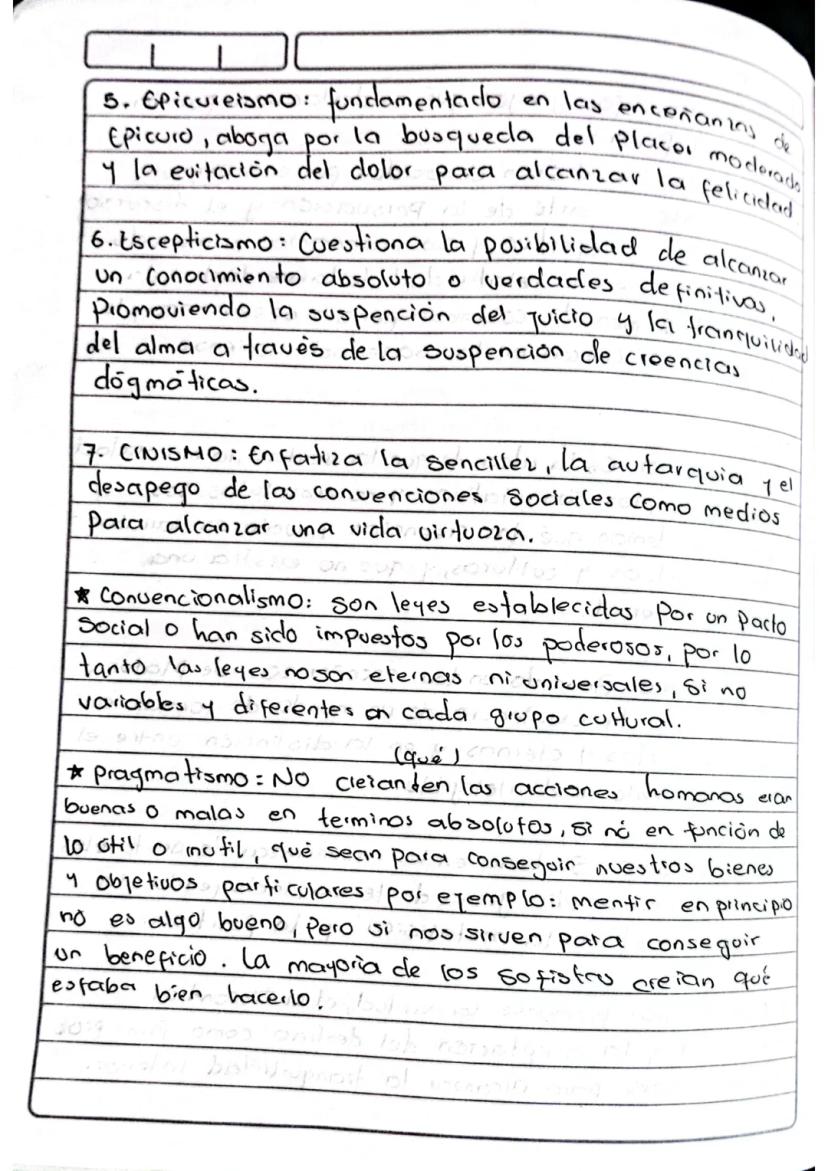 5. Epicureismo: fundamentado en las enceñanzas de
Epicuro, aboga por la busqueda del placer moderado
y la evitación del dolor para alcanzar la felicidad
6. Escepticismo: Cuestiona la posibilidad de alcanzar
un conocimiento absoluto o verdades definitivas,
promoviendo la suspención del juicio y la tranquilidad
del alma a través de la suspención de creencias
dógmáticas.
7. CINISMO: Enfatiza la sencillez, la autarquia y el
desapego de las convenciones sociales como medios
para alcanzar una vida virtuoza.
* Convencionalismo: son leyes establecidas por un pacto
social o han sido impuestos por los poderosos, por lo
tanto las leyes no son eternas ni universales, si no
variables y diferentes en cada grupo cultural.
(qué)
* pragmatismo: No creian las acciones homanas eran
buenas o malas en terminos absolutos, si nó en función de
lo útil o inutil, qué sean para conseguir nuestros bienes
y objetivos particulares por ejemplo: mentir en principio
no es algo bueno, pero si nos sirven para conseguir
un beneficio. La mayoria de los sofistas creian qué
estaba bien hacerlo.